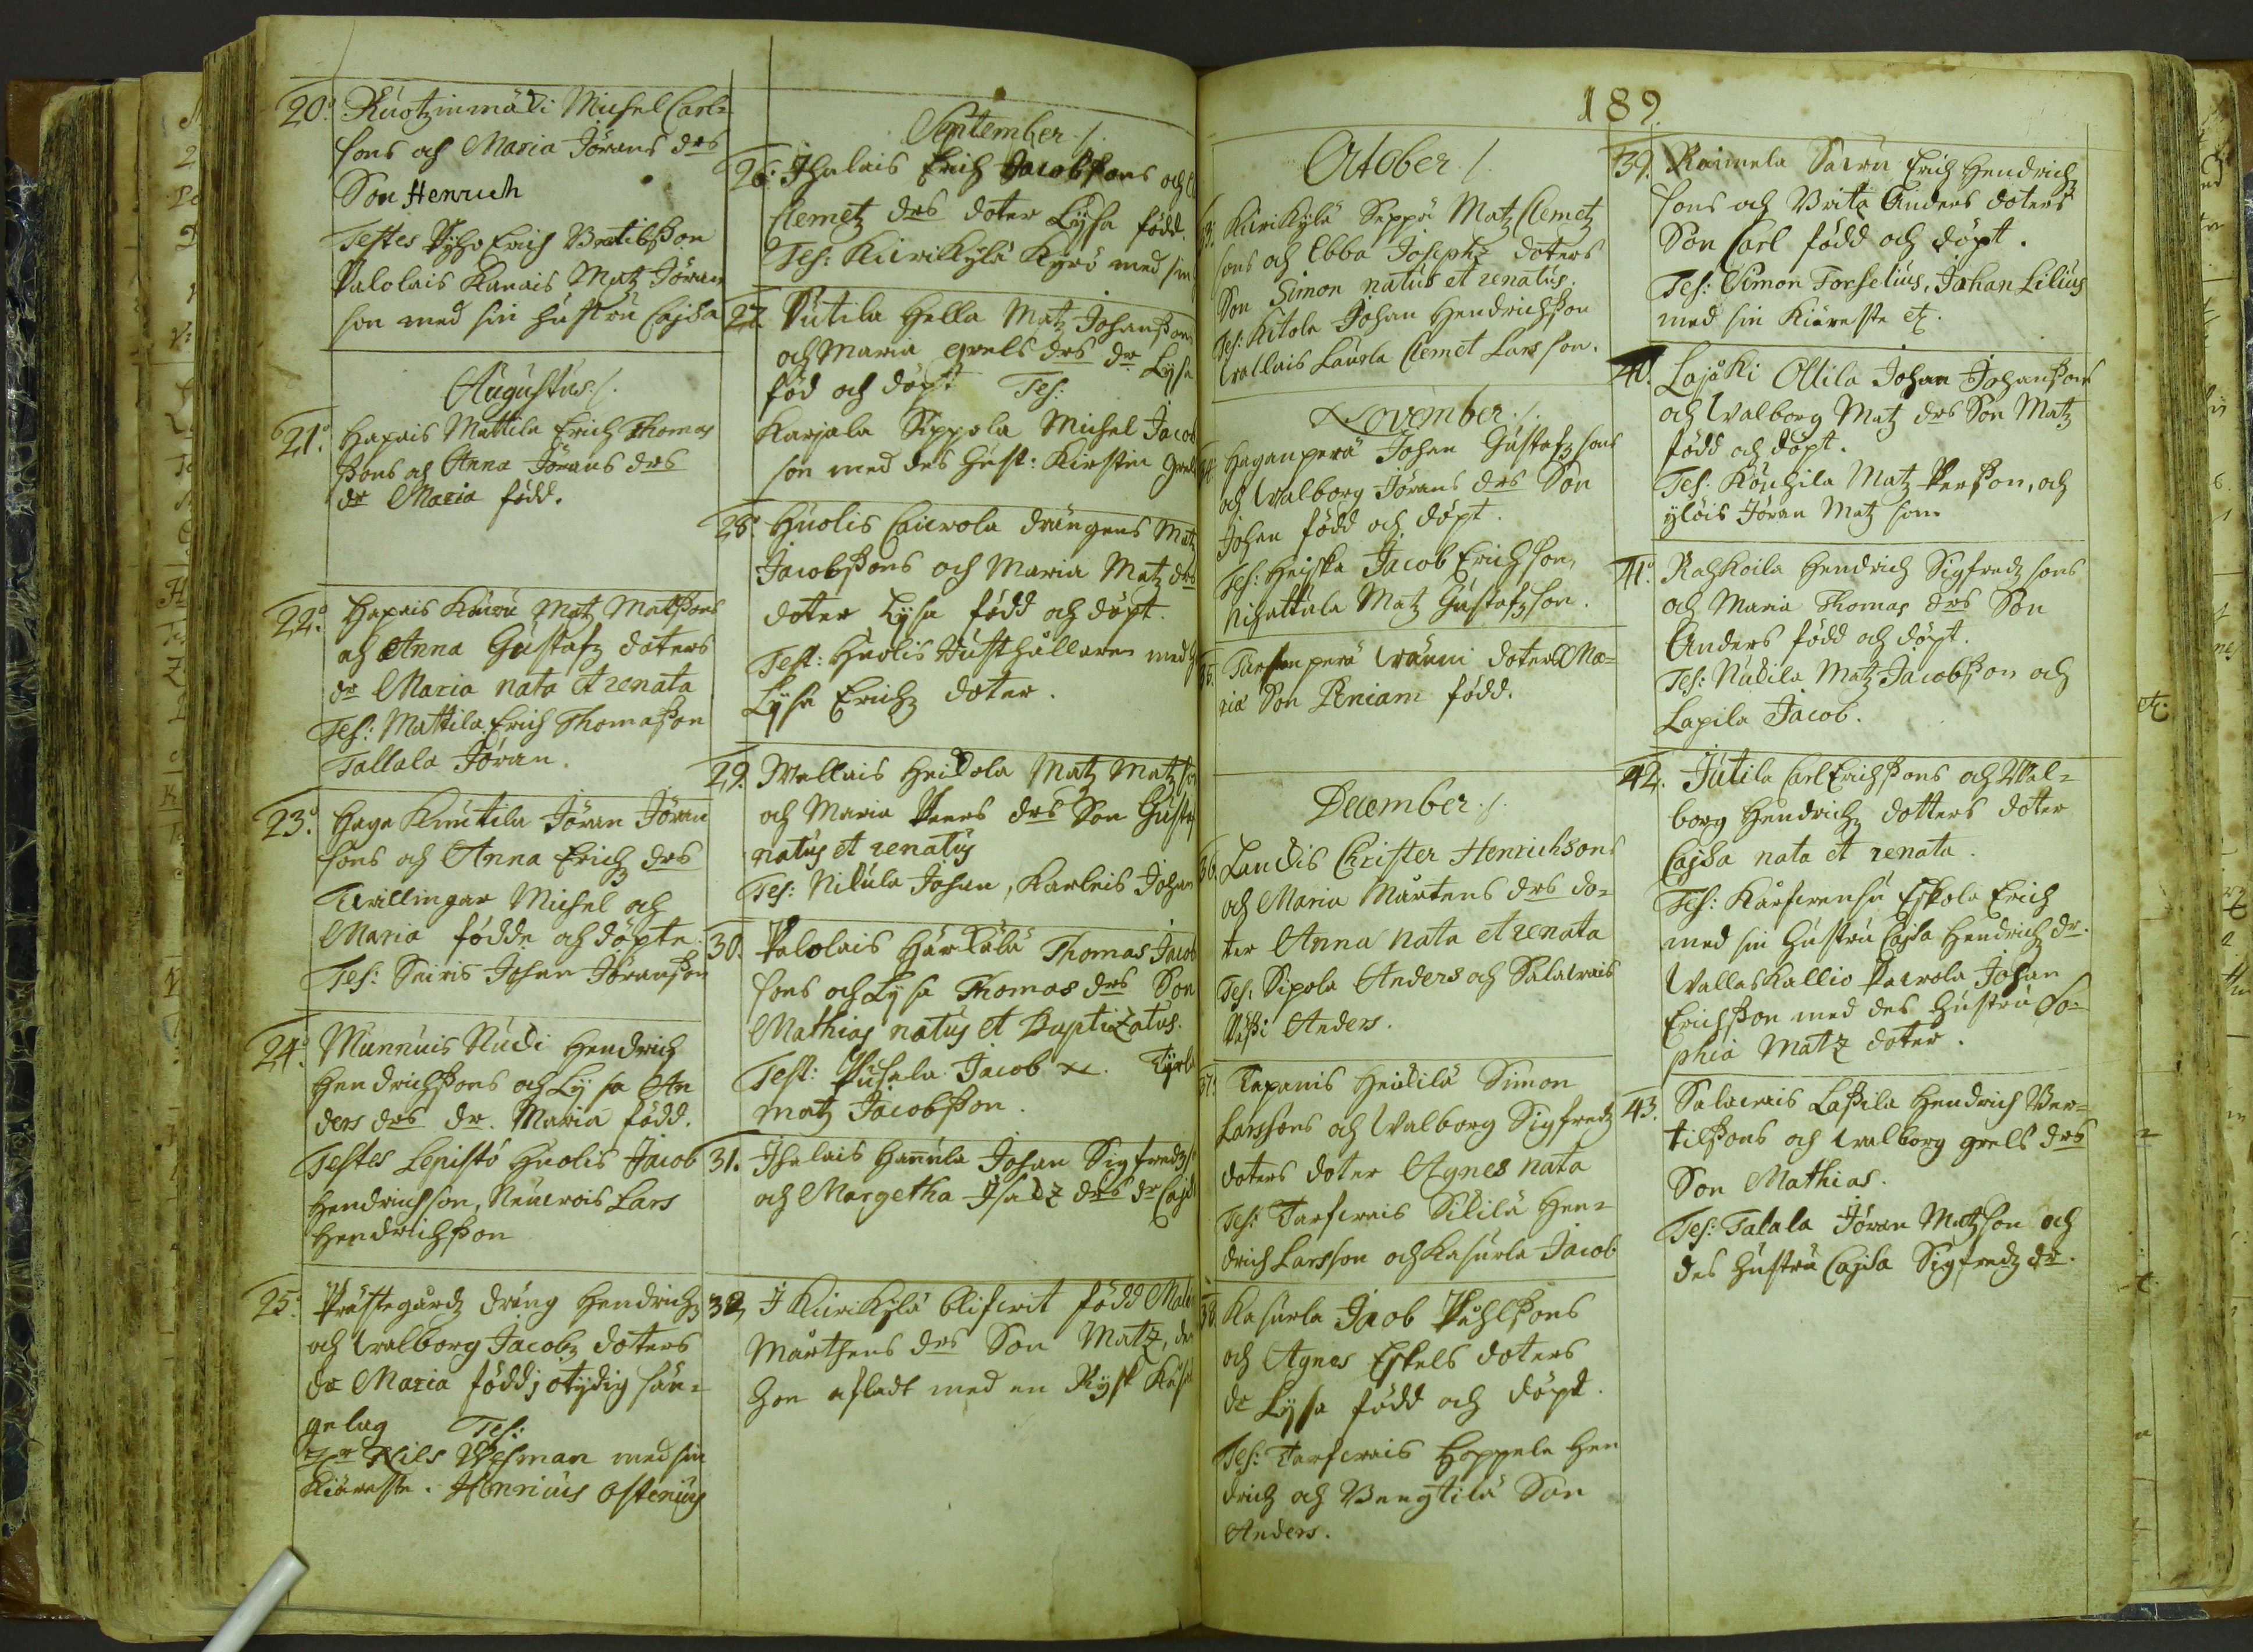 20. Ruotzinmäki Michel Carl-
sons och Maria Jörans drs
Son Henrich
Testes Pyho Erich Bertilsson
Palolais Kanais Matz Jöran
son med sin hustru Cajsa
Augustus /.
21. Hapais Mattila Erich Thomas
sons och Anna Jörans drs
dr Maria född.
22. Hapais Matz Matssons
och Anna Gustafz doters
dr Maria nata et renata
Tes: Mattila Erich Thomasson
Tallala Jöran.
23. Haga Knutila Jöran Jöran
sons och Anna Erichz drs
Twillingar Michel och
Maria födde och döpte
Tes: Seiris Johan Jöransson
24. Munnuis Nudi Hendrich
Hendrichssons och Lysa An
ders drs dr. Maria född.
Testes Lepistö Huolis Jacob
Hendrichsson, Lars
Hendrichsson
25. Prästegårdz dräng Hendrichz
och Walborg Jacobz doters
dr Maria född j otydig sän-
gelag Tes:
Nils Wesman med sin
Kiäreste. Henricus Ostenius
September /.
26. Ihalais Erich Jacobssons och
Clemetz drs doter Lysa född.
Tes: Kuirikylä Kyrö med sin
27. Putila Hella Matz Johanssons
och Maria grels drs dr Lysa
föd och döpt Tes:
Karjala Sippola Michel Jacob
son med des Hust: Kirstin Grels
28. Huolis Cauvola drängens Matz
Jacobssons och Maria Matz drs
doter Lysa född och döpt.
Test: Huolis Husthållaren med
Lysa Erichz doter.
29. Wallais Heikola Matz Matzson
och Maria Peers drs Son Gustaf
natus et renatus
Tes: Nikula Johan, Karleis Johan
30. Palolais Härkälä Thomas Jacob
sons och Lysa Thomas drs Son
Mathias natus et Baptizatus.
Test: Puhala Jacob
Matz Jacobsson.
31. Ihalais Hanula Johan Sigfredz
och Margetha Isacz drs dr Cajsa
32. I Kuirikylä blifwit född
Mårthens drs Son Matz, den
hon afladt med en Rysk
189.
October /.
33. Kuirikylä Seppä Matz Clemetz
sons och Ebba Josephz doters
Son Simon natus et renatus.
Tes: Kitola Johan Hendrichsson
Wallais Laurla Clemet Larsson.
November /.
34. Haganperä Johan Gustafzsons
och Walborg Jörans drs Son
Johan född och döpt.
Tes: Heiska Jacob Erichson,
Nihattula Matz Gustafzson.
35. Tursunperä Wäuni doters Ma-
ria Son Beniam född.
December /.
36. Laukis Christer Henrichsons
och Maria Mårtens drs do-
ter Anna nata et renata
Tes: Sipola Anders och Salawais
Päßi Anders.
37. Tapanis Heikilä Simon
Larssons och Walborg Sigfredz
doters doter Agnes nata
Tes: Tarfwais Sikilä Hen-
drich Larsson och Kasurla Jacob
38. Kasurla Jacob Påhlssons
och Agnes Eskels doters
dr Lysa född och döpt.
Tes: Tarfwais Hoppela Hen
drich och Bengtilä Son
Anders.
39. Raimela Sawu Erich Hendrichz
sons och Brita Anders doters
Son Carl född och döpt.
Tes: Simon Forselius, Johan Lilius
med sin Kiäreste etc.
40. Lajoki Ollila Johan Johanssons
och Walborg Matz drs Son Matz
född och döpt.
Tes: Kouhila Matz Persson, och
ylöis Jöran Matzson
41. Rahkoila Hendrich Sigfredzsons
och Maria Thomas drs Son
Anders född och döpt.
Tes: Nudila Matz Jacobsson och
Lapila Jacob.
42. Jutila Carl Erichssons och Wal-
borg Hendrichz dotters doter
Cajsa nata et renata.
Tes: Karfwensu Eskola Erich
med sin Hustru Cajsa Hendrichz dr.
Wallaskallio Pawola Johan
Erichsson med des Hustru So-
phia Matz doter.
43. Salawais Laßila Hendrich Ber-
tilssons och Walborg grels drs
Son Mathias.
Tes: Talala Jöran Matzson och
des Hustru Cajsa Sigfredz dr.